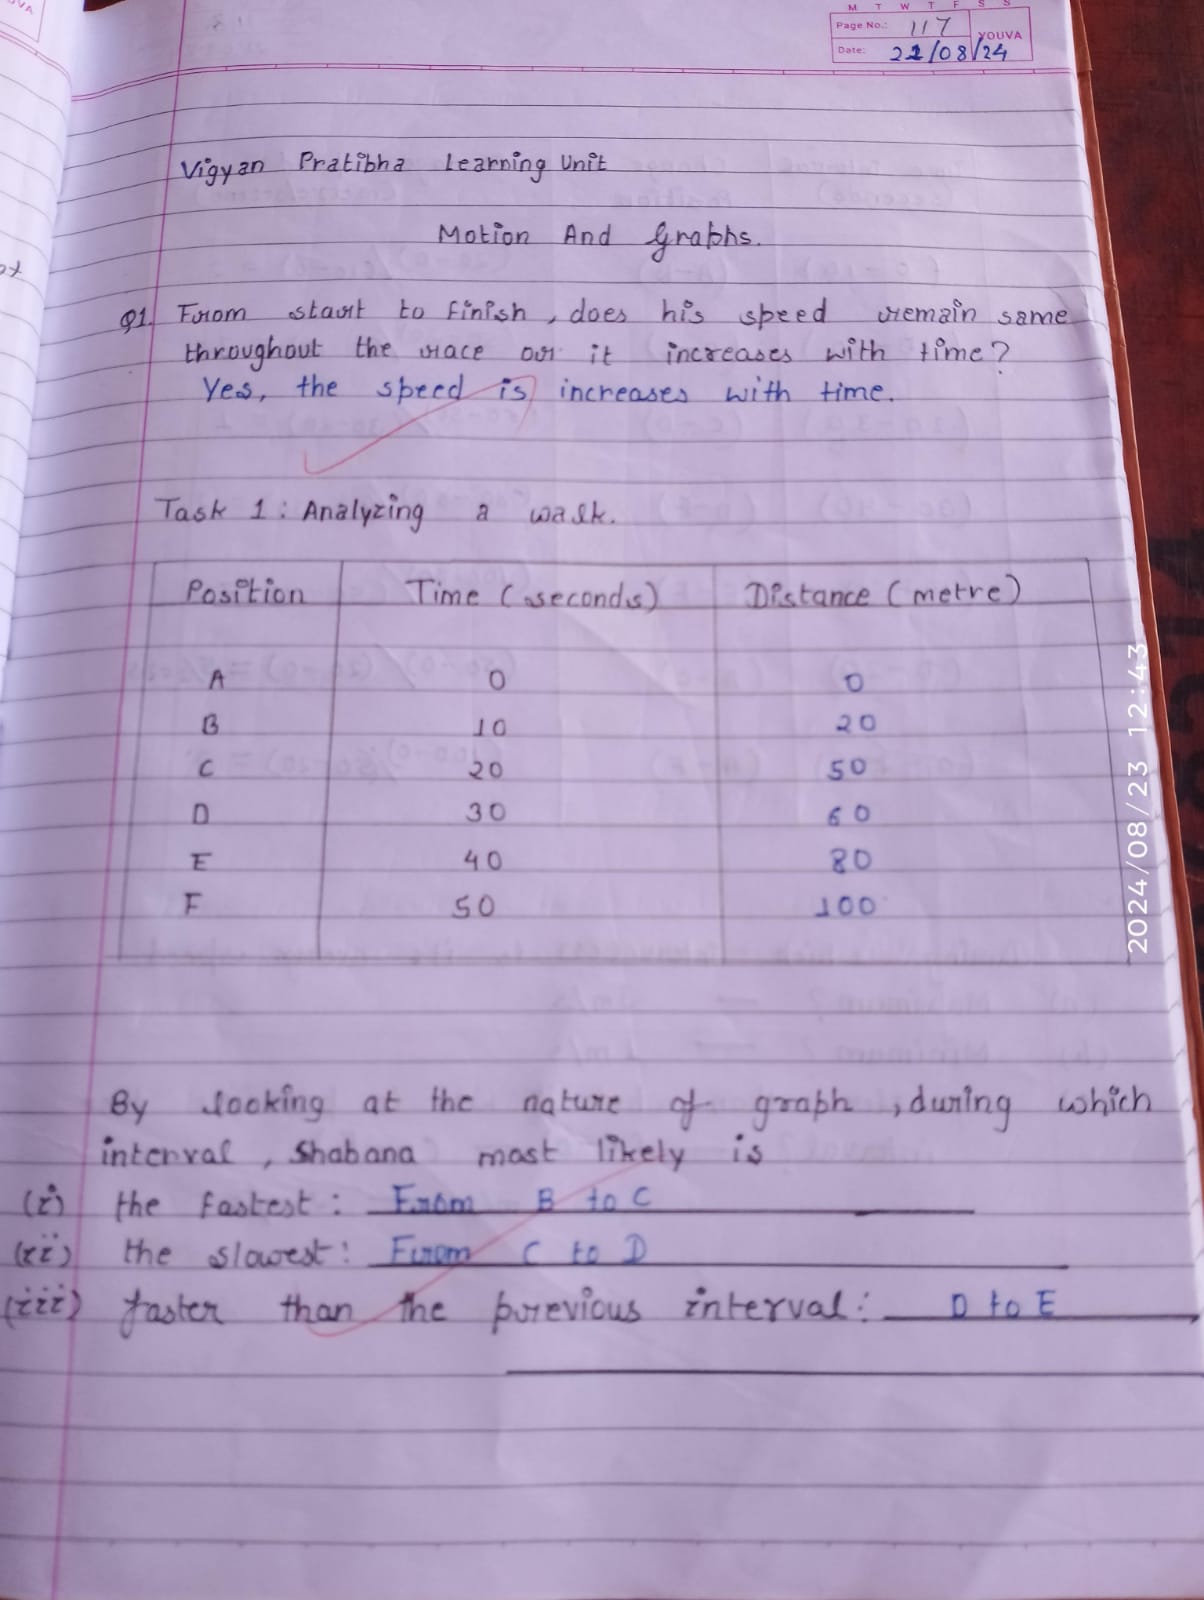 M T W T F S S
Page No.: 117
YOUVA
Date: 22/08/24
Vigyan Pratibha Learning Unit
Motion And Graphs.
Q1. From start to finish, does his speed remain same
throughout the race or it increases with time?
Yes, the speed is increases with time.
Task 1: Analyzing a walk.
Position Time (seconds) Distance (metre)
A 0 0
B 10 20
C 20 50
D 30 60
E 40 80
F 50 100
By looking at the nature of graph, during which
interval, Shabana most likely is
(i) the fastest: From B to C
(ii) the slowest: From C to D
(iii) faster than the previous interval: D to E
2024/08/23 12:43